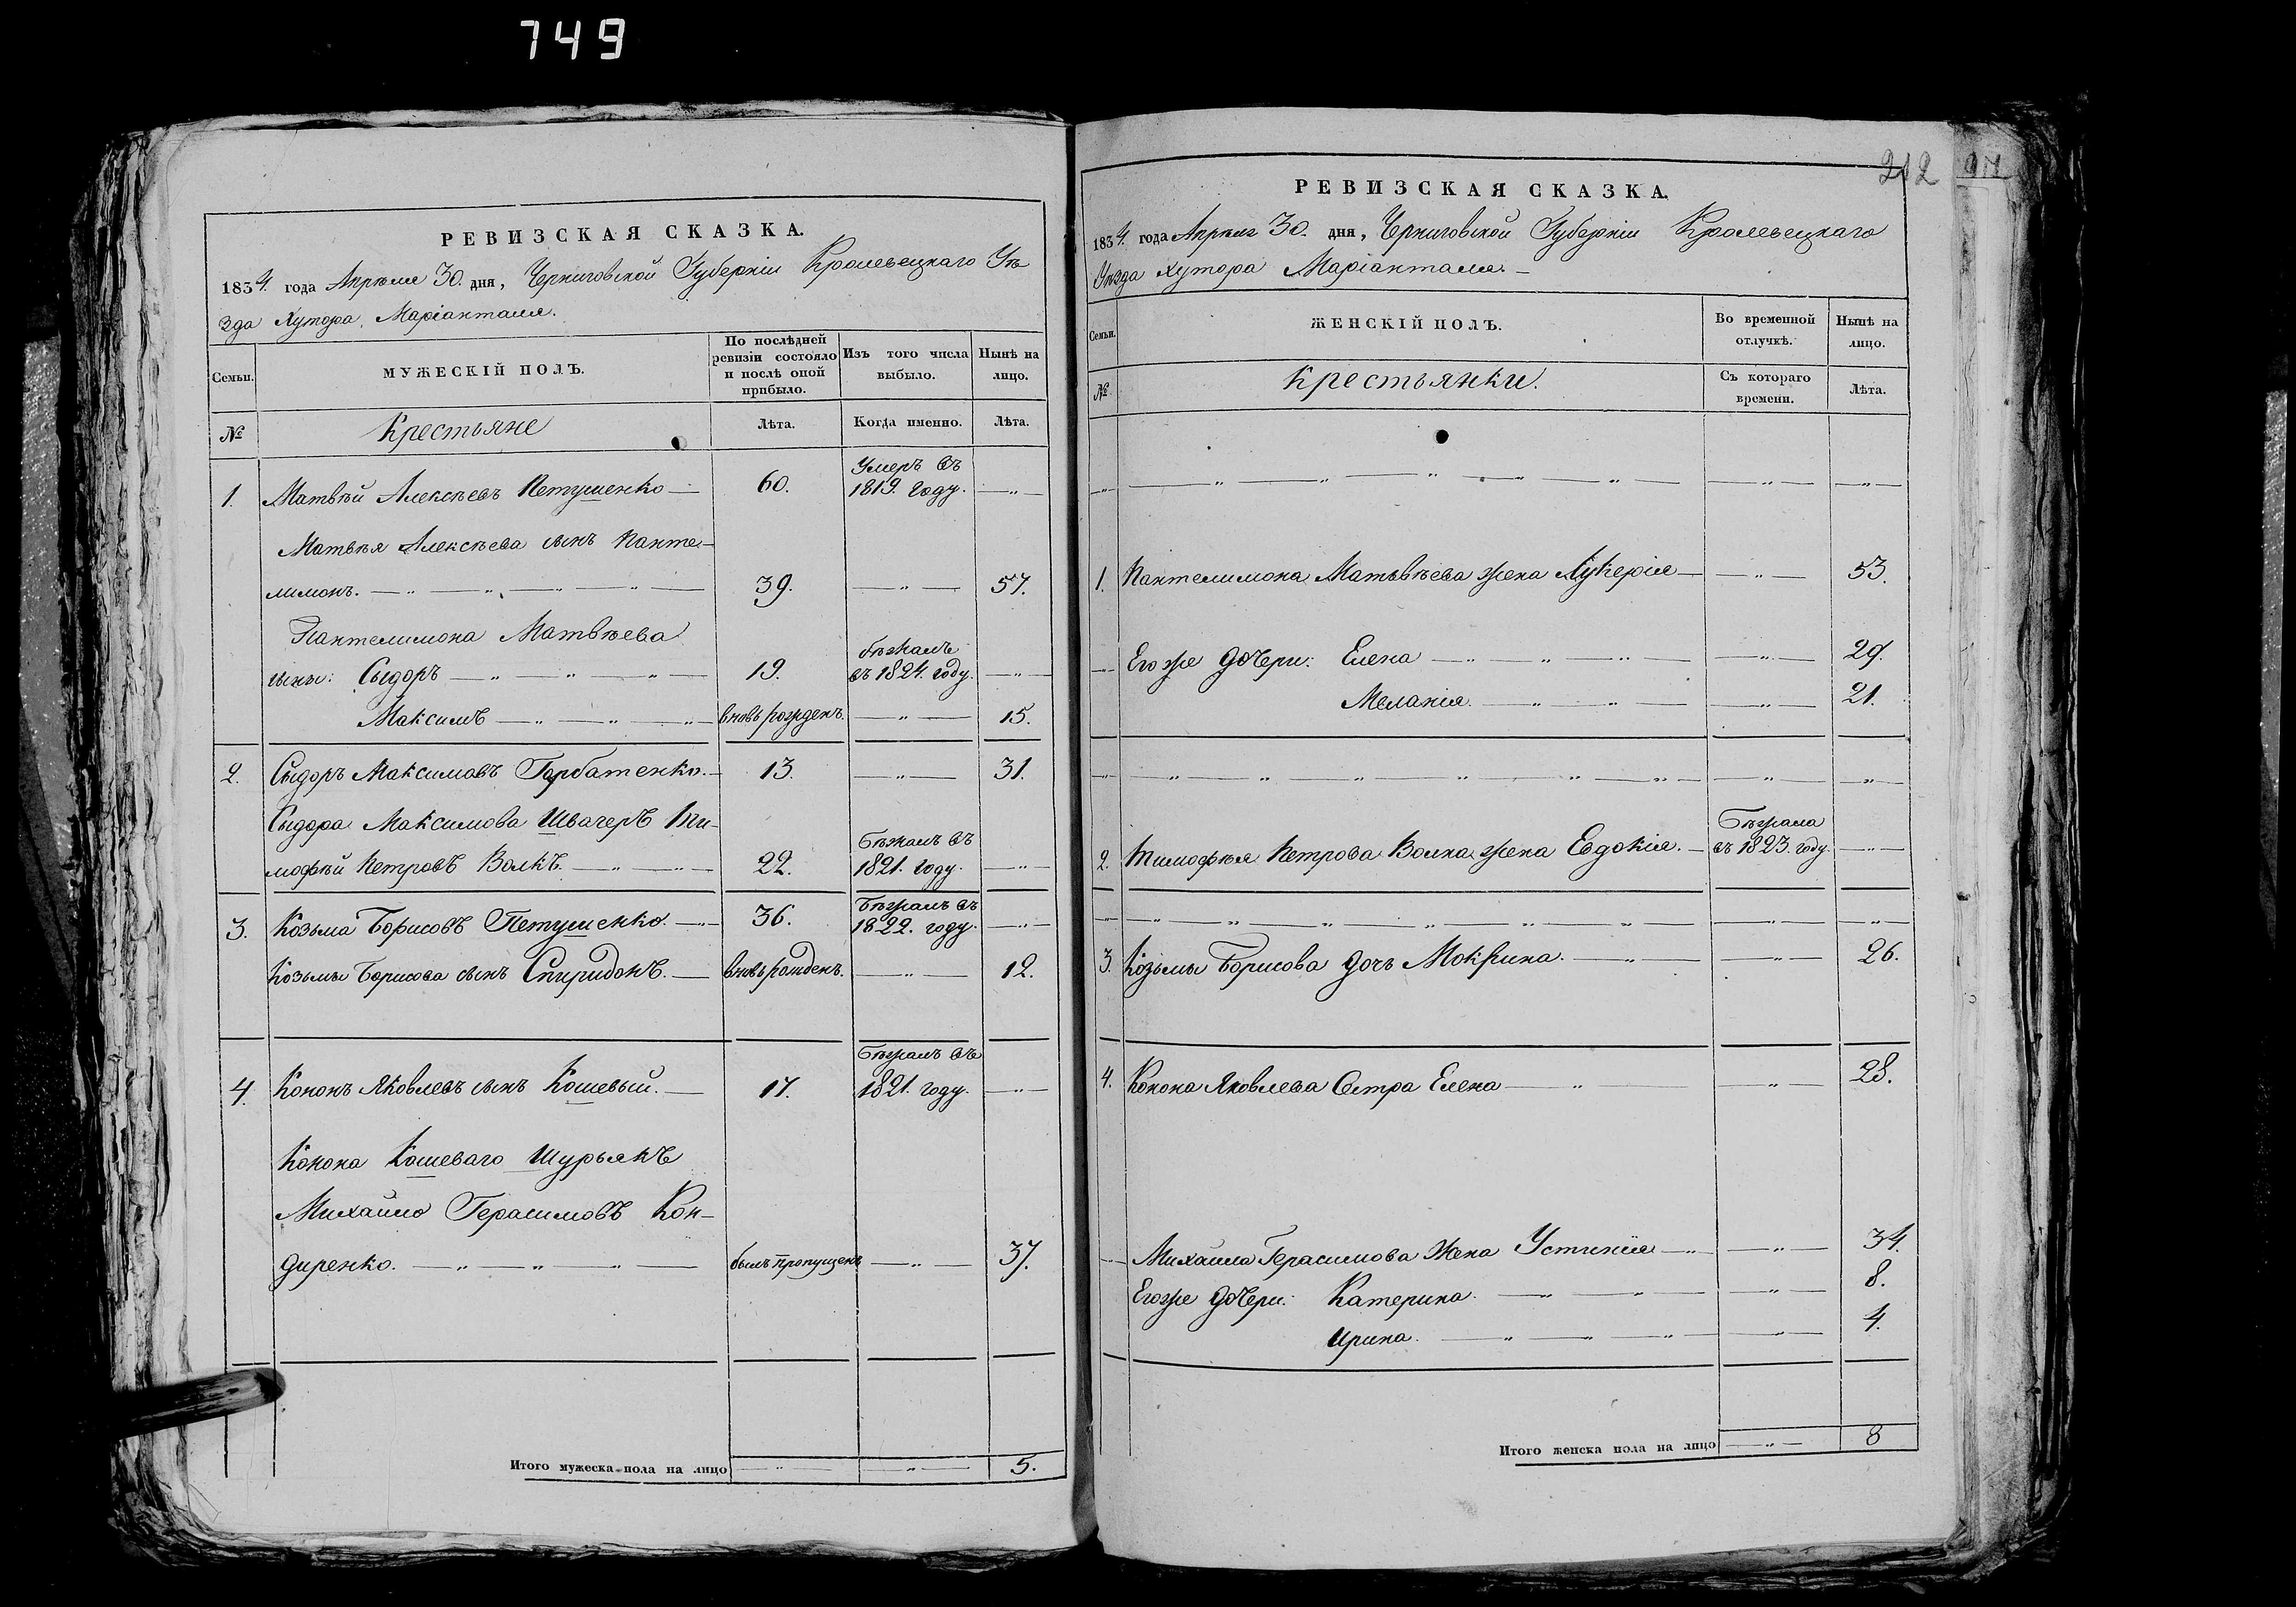 749
РЕВИЗСКАЯ СКАЗКА.
1834. года Апрѣля 30. дня, Черниговской Губерніи Кролевецкаго Уѣ
зда Хутора Маріанталя.
Семьи.
МУЖЕСКІЙ ПОЛЪ.
По послѣдней
ревизіи состояло
и послѣ оной
прибыло.
Изъ того числа
выбыло.
Нынѣ на
лицо.
№
Крестьяне
Лѣта.
Когда именно.
Лѣта.
Умеръ въ
1. Матвѣй Алексѣевъ Петушенко — 60. 1819. году. — „ —
Матвѣя Алексѣева сынъ Панте-
лимонъ. — „ — „ — „ — 39. — „ — 57.
Пантелимона Матвѣева
бѣжалъ
сыны: Сыдоръ — „ — „ — „ — 19. въ 1821. году. — „ —
Максимъ — „ — „ — „ — вновь рожденъ. — „ — 15.
2. Сыдоръ Максимовъ Горбатенко. — 13. — „ — 31.
Сыдора Максимова Швагеръ Ти-
Бѣжалъ въ
мофѣй Петровъ Волкъ. — „ — „ — 22. 1821. году. — „ —
Бѣжалъ въ
3. Козьма Борисовъ Петушенко. — „ — 36. 1822. году. — „ —
Козьмы Борисова сынъ Спиридонъ. — вновь рожденъ. — „ — 12.
Бѣжалъ въ
4. Кононъ Яковлевъ сынъ Кошевый. — 17. 1821. году. — „ —
Конона Кошеваго Шурьякъ
Михайло Герасимовъ Кон-
диренко. — „ — „ — „ — былъ пропущенъ — „ — 37.
Итого мужеска пола на лицо — „ — — „ — 5.
212
РЕВИЗСКАЯ СКАЗКА.
1834. года Апрѣля 30. дня, Черниговской Губерніи Кролевецкаго
Уѣзда Хутора Маріанталя. —
Семьи.
ЖЕНСКІЙ ПОЛЪ.
Во временной
отлучкѣ.
Нынѣ на
лицо.
№
Крестьянки.
Съ котораго
времени.
Лѣта.
— „ — „ — „ — „ — „ — „ — „ — „ —
1. Пантелимона Матьвѣева жена Лукерія — — „ — 53.
— Егоже дочери: Елена — „ — „ — „ — — „ — 29.
Меланія. — „ — „ — — „ — 21.
— „ — „ „ „ „ — „ — „ — — „ — „ —
Бѣжала
2. Тимофѣя Петрова Волка жена Евдокія. — въ 1823. году. — „ —
— „ — „ — „ — „ — „ — „ — „ — „ — „ —
3. Козьмы Борисова дочь Мокрина. — „ — — „ — 26.
4. Конона Яковлева Сестра Елена — „ — „ — 28.
— Михайла Герасимова Жена Устинія — „ — — „ — 34.
Егоже дочери: Катерина. — „ — „ — — „ — 8.
Ирина. — „ — „ — „ — — „ — 4.
Итого женска пола на лицо — „ — 8